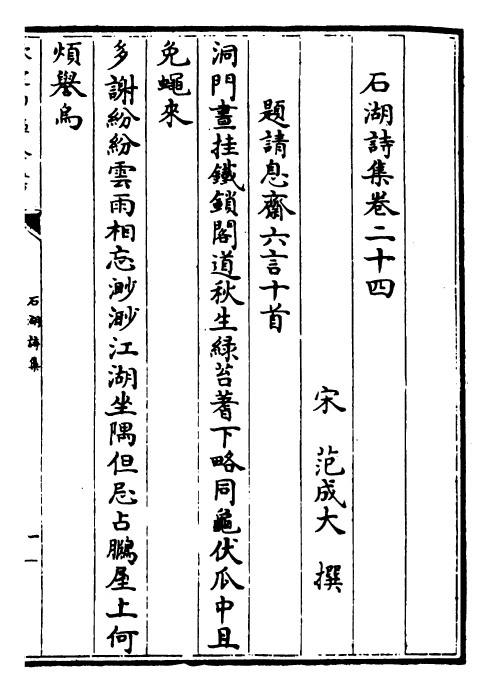 石湖詩集卷二十四
宋　范成大　撰
題請息齋六言十首
洞門晝挂鐵鎖閣道秋生緑苔蓍下略同龜伏瓜中且
免蠅來
多謝紛紛雲雨相忘渺渺江湖坐隅但忌占鵩屋上何
煩譽烏
石湖詩集
一